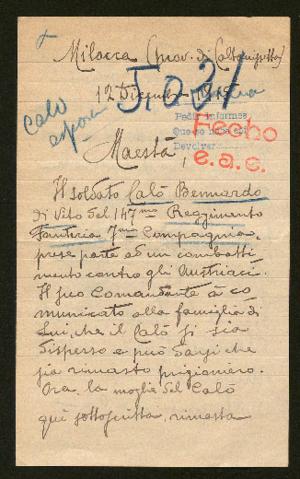 Milocca (prov. di Caltanissetta)
12 Dicembre 1915
5.031
Calò
esposa
Pedir informes
Que se haga así
Devolver
Hecho
e.a.c.
Maestà,
Il soldato Calò Bennardo
di Vito del 147mo Reggimento
Fanteria 7ma Compagnia,
prese parte ad un combatti
mento contro gli Austriaci.
Il suo Comandante à co
municato alla famiglia di
Lui, che il Calò si sia
disperso e può darsi che
sia rimasto prigioniero.
Ora, la moglie del Calò
qui sottoscritta, rimasta